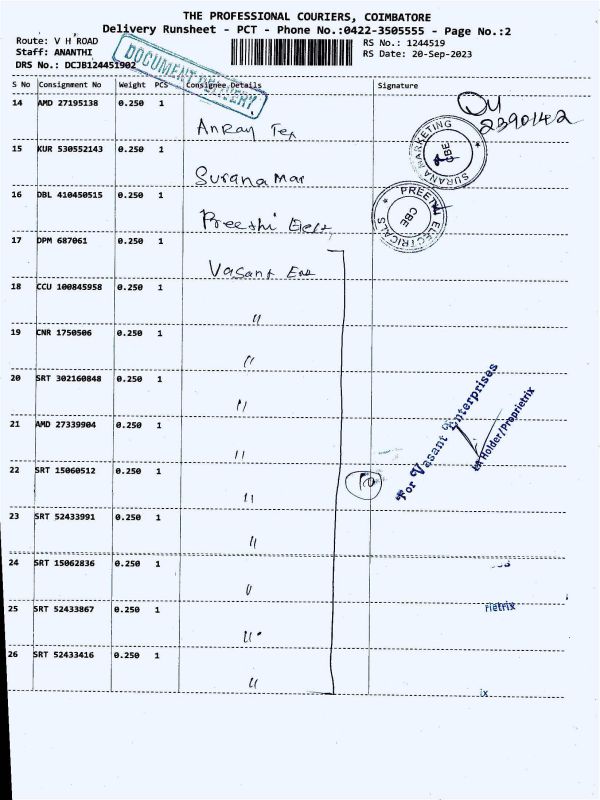 THE PROFESSIONAL COURIERS, COIMBATORE
Delivery Runsheet - PCT - Phone No.:0422-3505555 - Page No.:2
Route: V H ROAD
RS No.: 1244519
Staff: ANANTHI
RS Date: 20-Sep-2023
DRS No.: DCJB124451902
DOCUMENT DELIVERY
S No Consignment No Weight PCS Consignee Details Signature
14 AMD 27195138 0.250 1
2390142
15 KUR 530552143 0.250 1
Surana Mar
SURANA MARKETING
CBE
16 DBL 410450515 0.250 1
PREETHI ELECTRICALS
CBE
17 DPM 687061 0.250 1
Vasant
18 CCU 100845958 0.250 1
"
19 CNR 1750506 0.250 1
"
20 SRT 302160848 0.250 1
"
21 AMD 27339904 0.250 1
"
22 SRT 15060512 0.250 1
"
For Vasant Enterprises
Holder/Proprietrix
23 SRT 52433991 0.250 1
"
24 SRT 15062836 0.250 1
"
25 SRT 52433867 0.250 1
"
rietrix
26 SRT 52433416 0.250 1
"
ix